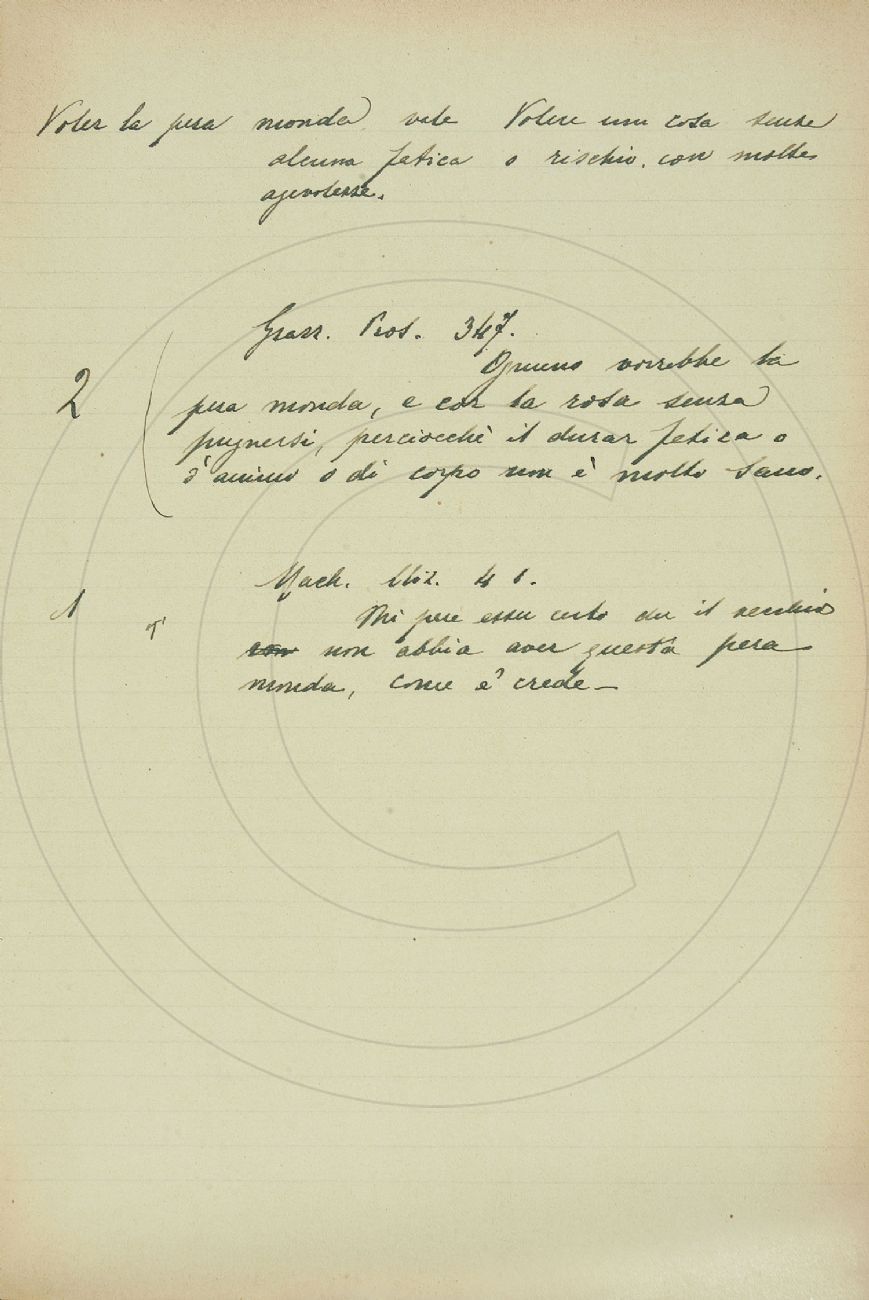 Voler la pera monda vale Volere una cosa senza
alcuna fatica o rischio, con molta
agevolezza.
Grazz. Pros. 347.
Ognuno vorrebbe la
pera monda, e cor la rosa senza
pugnersi, perciocchè il durar fatica o
d'animo o di corpo non è molto sano.
Mach. Cliz. 4 1.
Mi pare esser certo che il vecchio
non abbia aver questa pera
monda, come e' crede —
2
1
T